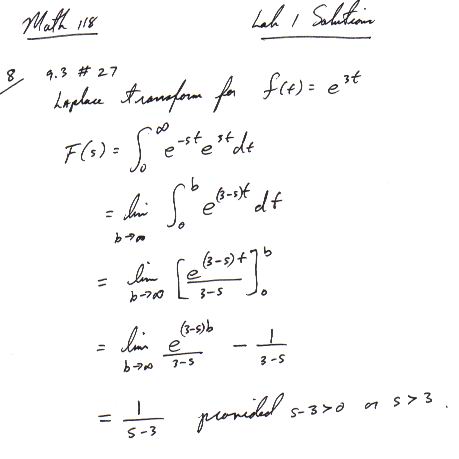 Math 118 Lab 1 Solutions
8 9.3 # 27
Laplace transform for f(t) = e^{3t}
F(s) = ∫_0^∞ e^{-st} e^{3t} dt
= lim_{b→∞} ∫_0^b e^{(3-s)t} dt
= lim_{b→∞} [e^{(3-s)t} / (3-s)]_0^b
= lim_{b→∞} e^{(3-s)b} / (3-s) - 1 / (3-s)
= 1 / (s-3) provided s-3>0 or s>3.